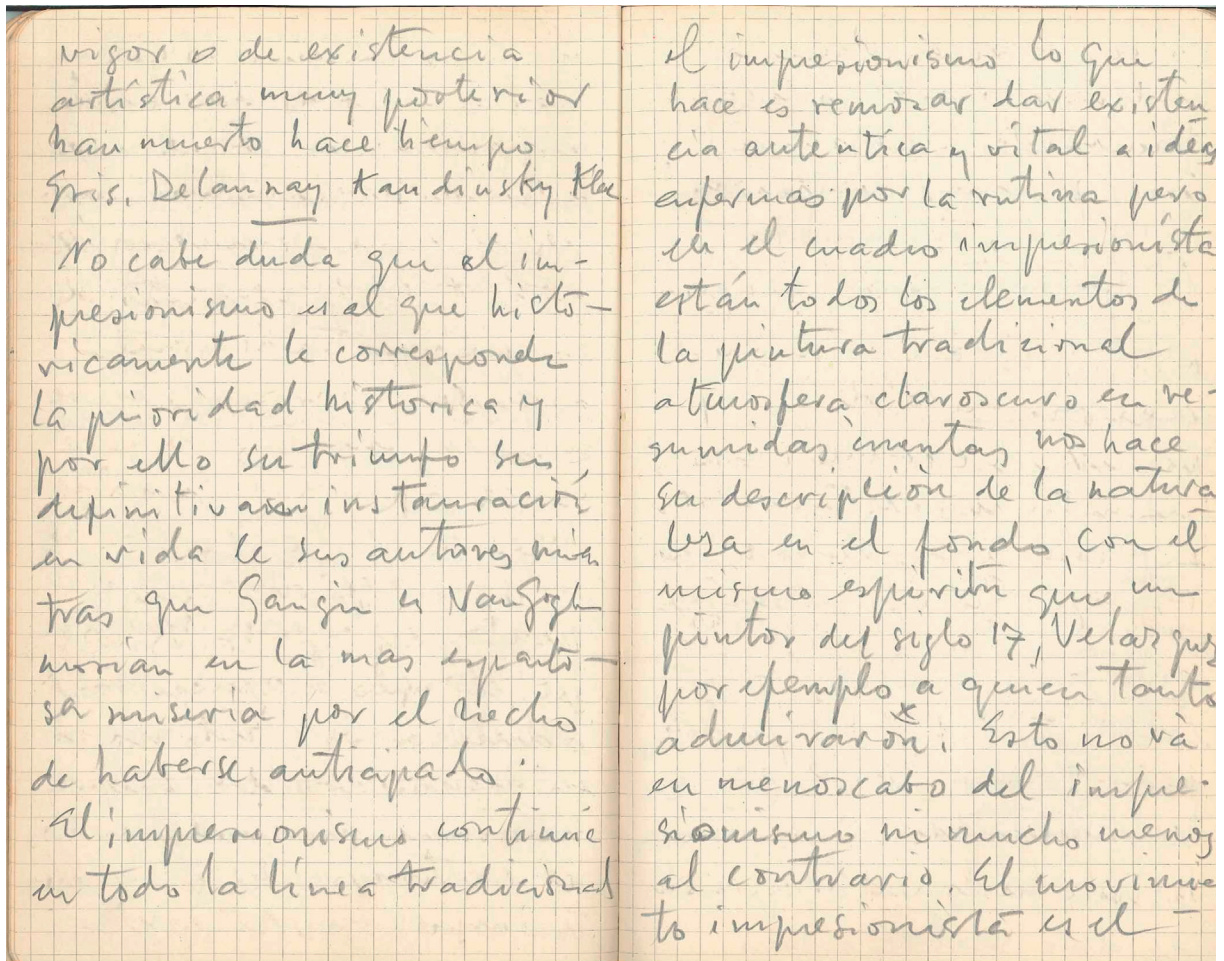 vigor o de existencia
artística muy posterior
han muerto hace tiempo
Gris, Delaunay Kandinsky Klee
No cabe duda que el im-
presionismo es al que histó-
ricamente le corresponde
la prioridad historica y
por ello su triunfo su
definitiva instauración
en vida de sus autores mien
tras que Gaugin y VanGogh
morian en la mas espanto-
sa miseria por el hecho
de haberse anticipado.
El impresionismo continua
en todo la línea tradicional
el impresionismo lo que
hace es remozar dar existen
cia autentica y vital a ideas
enfermas por la rutina pero
en el cuadro impresionista
están todos los elementos de
la pintura tradicional
atmosfera claroscuro en re-
sumidas cuentas nos hace
su descripción de la natura
leza en el fondo, con el
mismo espiritu que un
pintor del siglo 17, Velazquez
por ejemplo a quien tanto
admiraron. x Esto no và
en menoscabo del impre-
sionismo ni mucho menos
al contrario. El movimie
to impresionista es el -